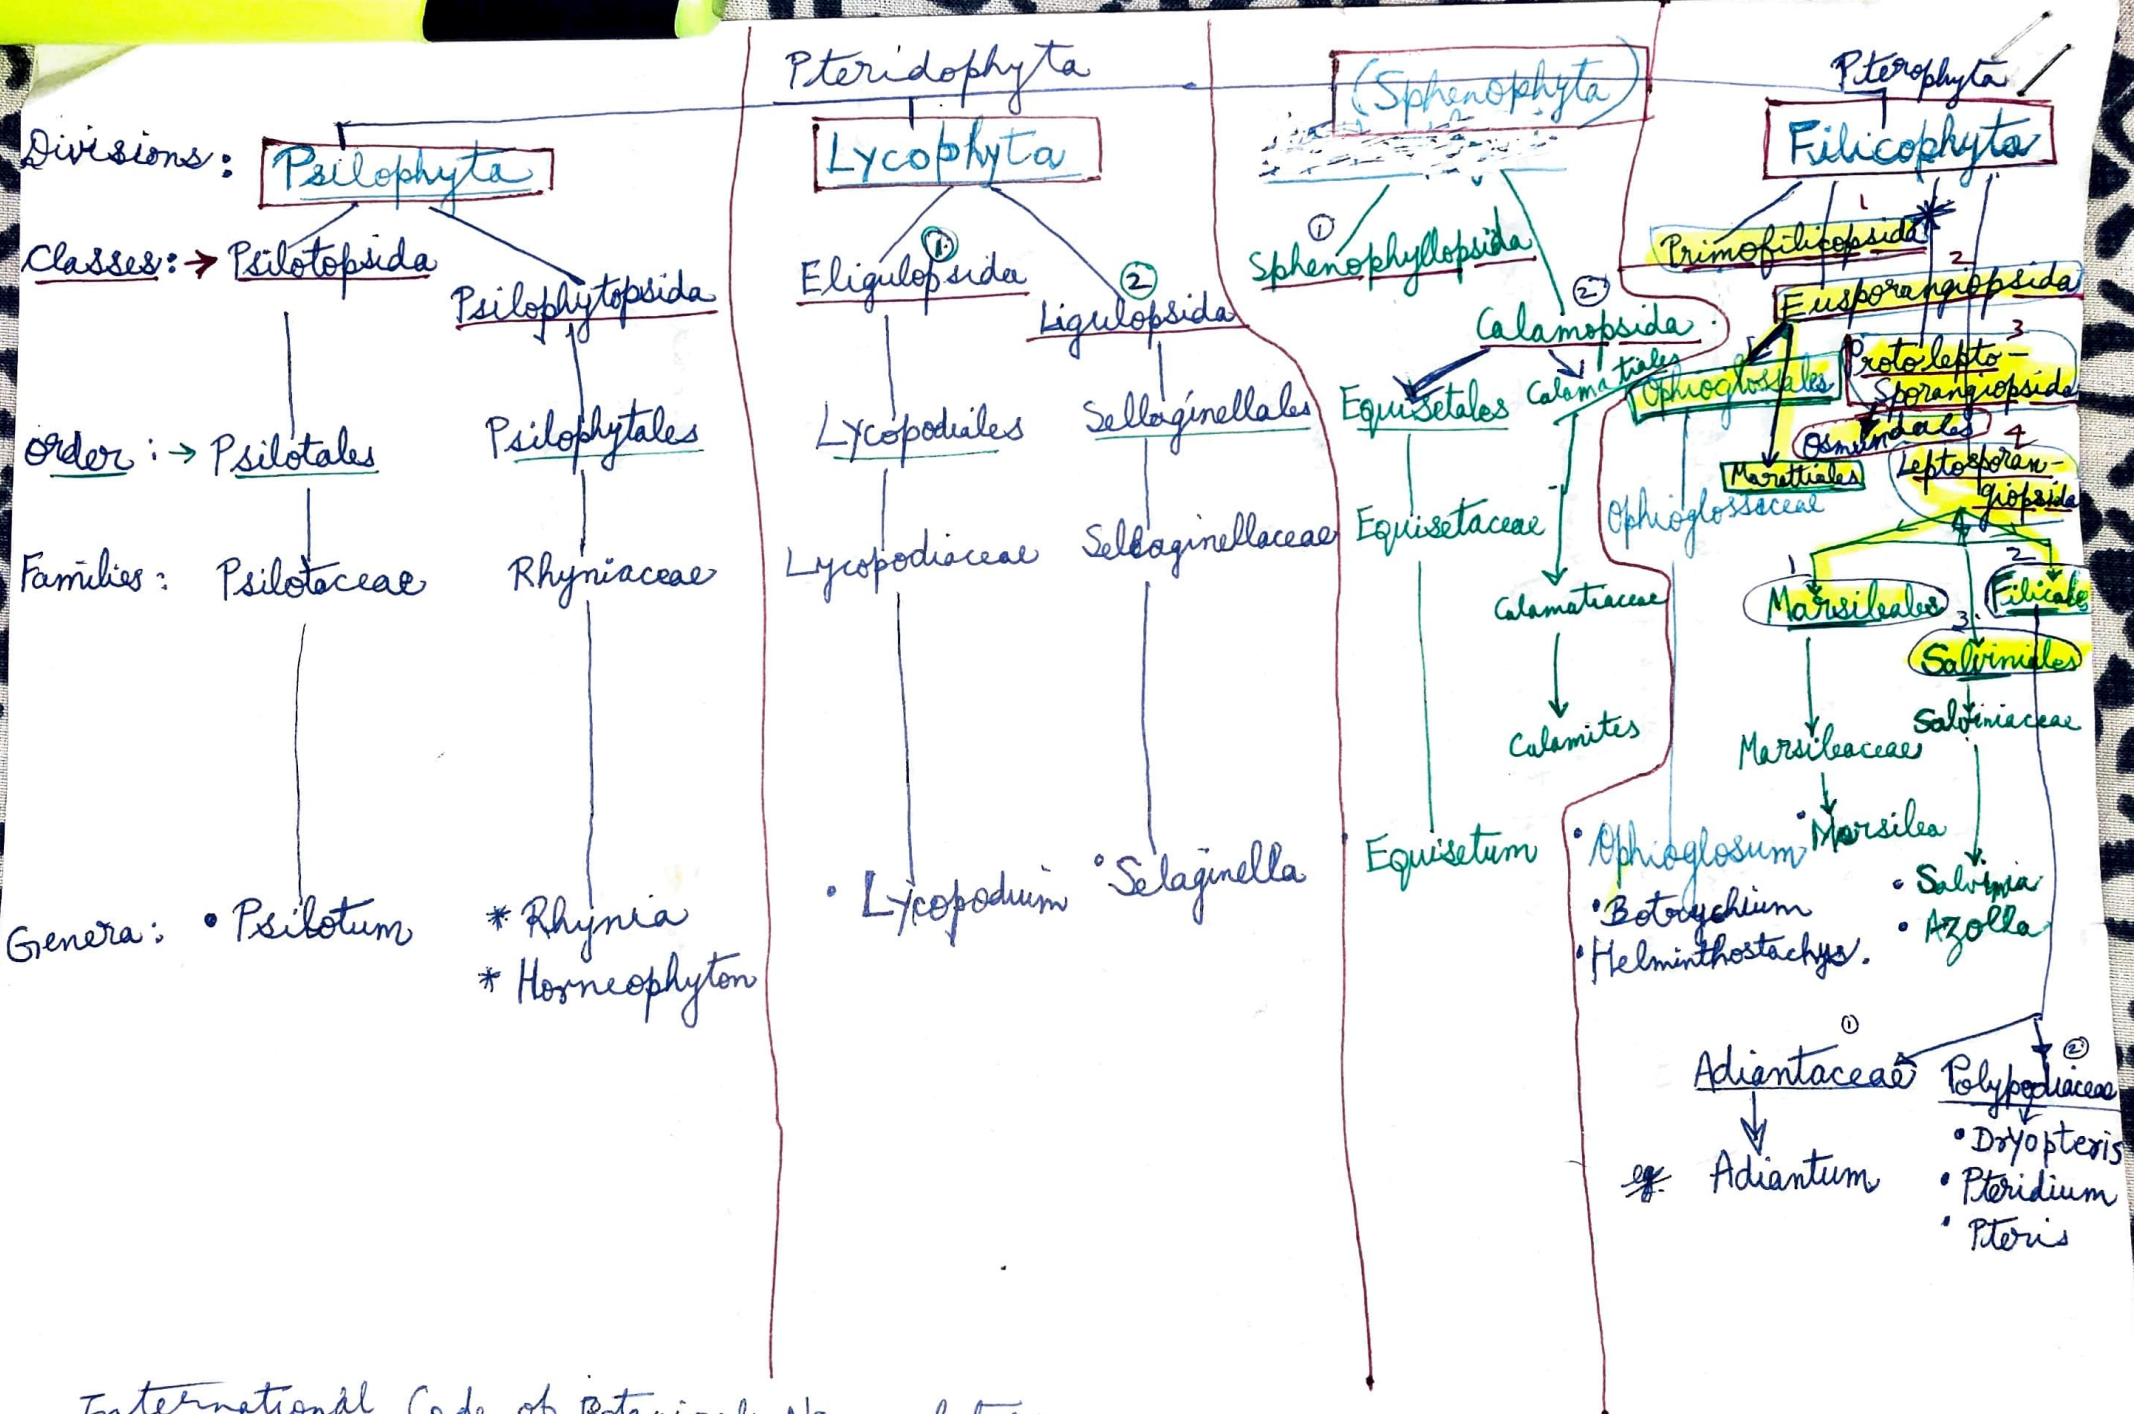 Pteridophyta
Divisions: Psilophyta Lycophyta (Sphenophyta) Pterophyta
Filicophyta
Classes:→ Psilotopsida Psilophytopsida
① Eligulopsida ② Ligulopsida
① Sphenophyllopsida
② Calamopsida
1 Primofilicopsida
2 Eusporangiopsida
3 Protolepto-
sporangiopsida
4 Leptosporan-
giopsida
Order:→ Psilotales Psilophytales Lycopodiales Sellaginellales Equisetales Calamatiales Ophioglossales
Osmundales
Marattiales
1 Marsileales 2 Filicales
3. Salviniales
Families: Psilotaceae Rhyniaceae Lycopodiaceae Sellaginellaceae Equisetaceae Ophioglossaceae
Calamatiaceae
Marsileaceae Salviniaceae
Calamites
Genera: • Psilotum * Rhynia
* Horneophyton
• Lycopodium • Selaginella Equisetum
• Ophioglosum • Marsilea
• Botrychium
• Helminthostachys.
• Salvinia
• Azolla
① Adiantaceae ② Polypodiaceae
eg. Adiantum
• Dryopteris
• Pteridium
• Pteris
International Code of Botanical